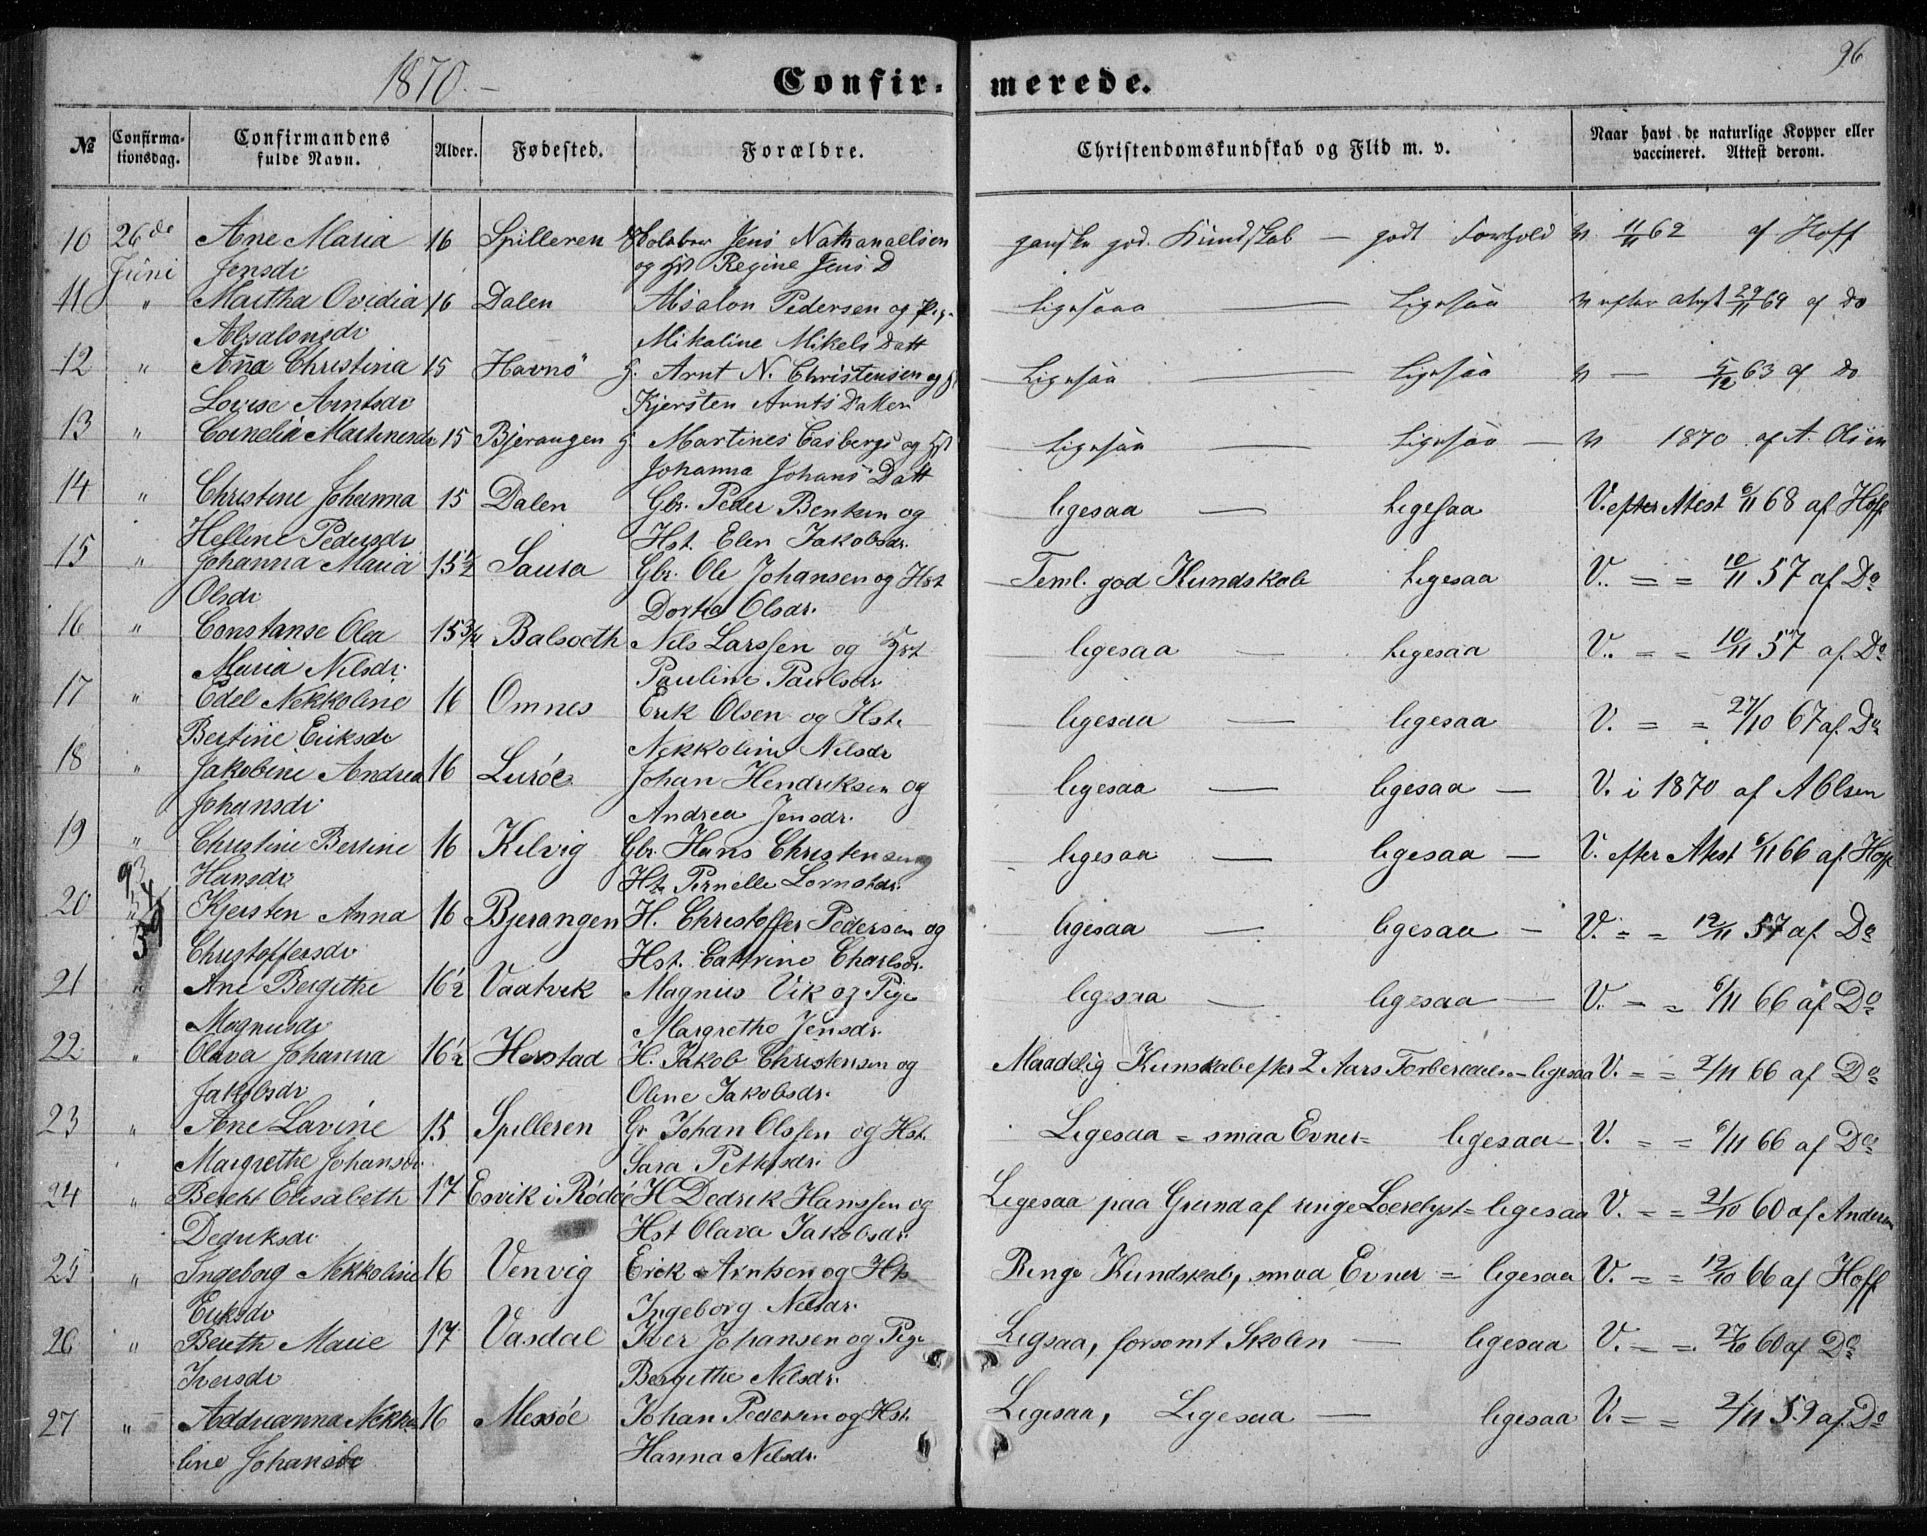 1870.-
Confir-merede.
96
№ Confirma-tionsdag. Confirmandens fulde Navn. Alder. Fødested. Forældre. Christendomskundskab og Flid m. v. Naar havt de naturlige Kopper eller vaccineret. Attest derom.
10 26de Ane Maria 16 Spilleren Jens Nathanaelsen ganske god Kundskab — godt Forhold v 11/11 62 af Hoff
Juni Jensdr og Hst Regine Jens D
11 " Martha Ovidia 16 Dalen Absalon Pedersen og Pig. Ligesaa — Ligesaa v efter Atest 29/11 69 af Do
Absalonsdr Mikaline Mikels Datt
12 " Anna Christina 15 Havnö G. Arnt N. Christensen og Hst Ligesaa — Ligesaa v — 5/12 63 af Do
Lovise Arntsdr Kjersten Arnts Datter
13 " Cornelia Martinesdr 15 Bjerangen G Martines Casbergs og Hst Ligesaa Ligesaa — v — 1870 af A. Olsen
Johanna Johans Datt
14 " Christine Johanna 15 Dalen Gbr. Peder Bentsen og ligesaa — Ligesaa V. efter Atest 6/11 68 af Hoff
Helline Pedersdr Hst. Elen Jakobsdr.
15 " Johanna Maria 15½ Saura Gbr. Ole Johansen og Hst Teml. god Kundskab Ligesaa V. = = 10/11 57 af Do
Olsdr Dortea Olsdr.
16 " Constanse Olea 15¾ Balsoeth Nils Larssen og Hst ligesaa — Ligesaa V. = = 10/11 57 af Do
Maria Nilsdr. Pauline Paulsdr
17 " Edel Nekkoline 16 Omnes Erik Olsen og Hst. ligesaa — ligesaa V. = = 27/10 67 af Do
Bertine Eriksdr Nekkoline Nilsdr
18 " Jakobine Andrea 16 Lurøe Johan Hendriksen og ligesaa — ligesaa — V. i 1870 af A Olsen
Johansdr Andrea Jensdr.
19 " Christine Bertine 16 Kilvig Gbr. Hans Christensen og ligesaa — ligesaa — V. efter Atest 6/11 66 af Hoff
Hansdr Hst Pernelle Lorntsdr.
20 " Kjersten Anna 16 Bjerangen H. Christoffer Pedersen og ligesaa — ligesaa — V. = = 12/11 57 af Do
Christoffersdr Hst. Cathrine Charlsdr.
21 " Ane Bergithe 16½ Vaatvik Magnus Vik og Pige ligesaa — ligesaa — V. = = 6/11 66 af Do
Magnusdr Margrethe Jensdr.
22 " Olava Johanna 16½ Horstad H. Jakob Christensen og Maadelig Kunskab efter 2 Aars Forberedelse = ligesaa V. = = 2/11 66 af Do
Jakobsdr Oline Jakobsdr.
23 " Ane Lavine 15 Spilleren Gr Johan Olssen og Hst. Ligesaa = smaa Evner = ligesaa — V. = = 6/11 66 af Do
Margrethe Johansdr. Sara Petersdr.
24 " Bereht Elisabeth 17 Esvik i Rödöe H Dedrik Hanssen og Ligesaa paa Grund af ringe Loerelyst = ligesaa V. = = 21/10 60 af Andersen
Dedriksdr Hst Olava Jakobsdr.
25 " Ingeborg Nekkoline 16 Venvig Erik Arntsen og Hst Ringe Kundskab, smaa Evner = ligesaa V. = = 12/10 66 af Hoff
Eriksdr Ingeborg Nilsdr.
26 " Bereth Marie 17 Vasdal Iver Johansen og Pige Ligsaa, forsomt Skolen — ligesaa V. = = 27/10 60 af Do
Iversdr Bergithe Nilsdr.
27 " Addrianna Nekko- 16 Messöe Johan Pedersen og Hst. Ligesaa, Ligesaa — ligesaa V. = = 2/11 59 af Do
line Johansdr Hanna Nilsdr.